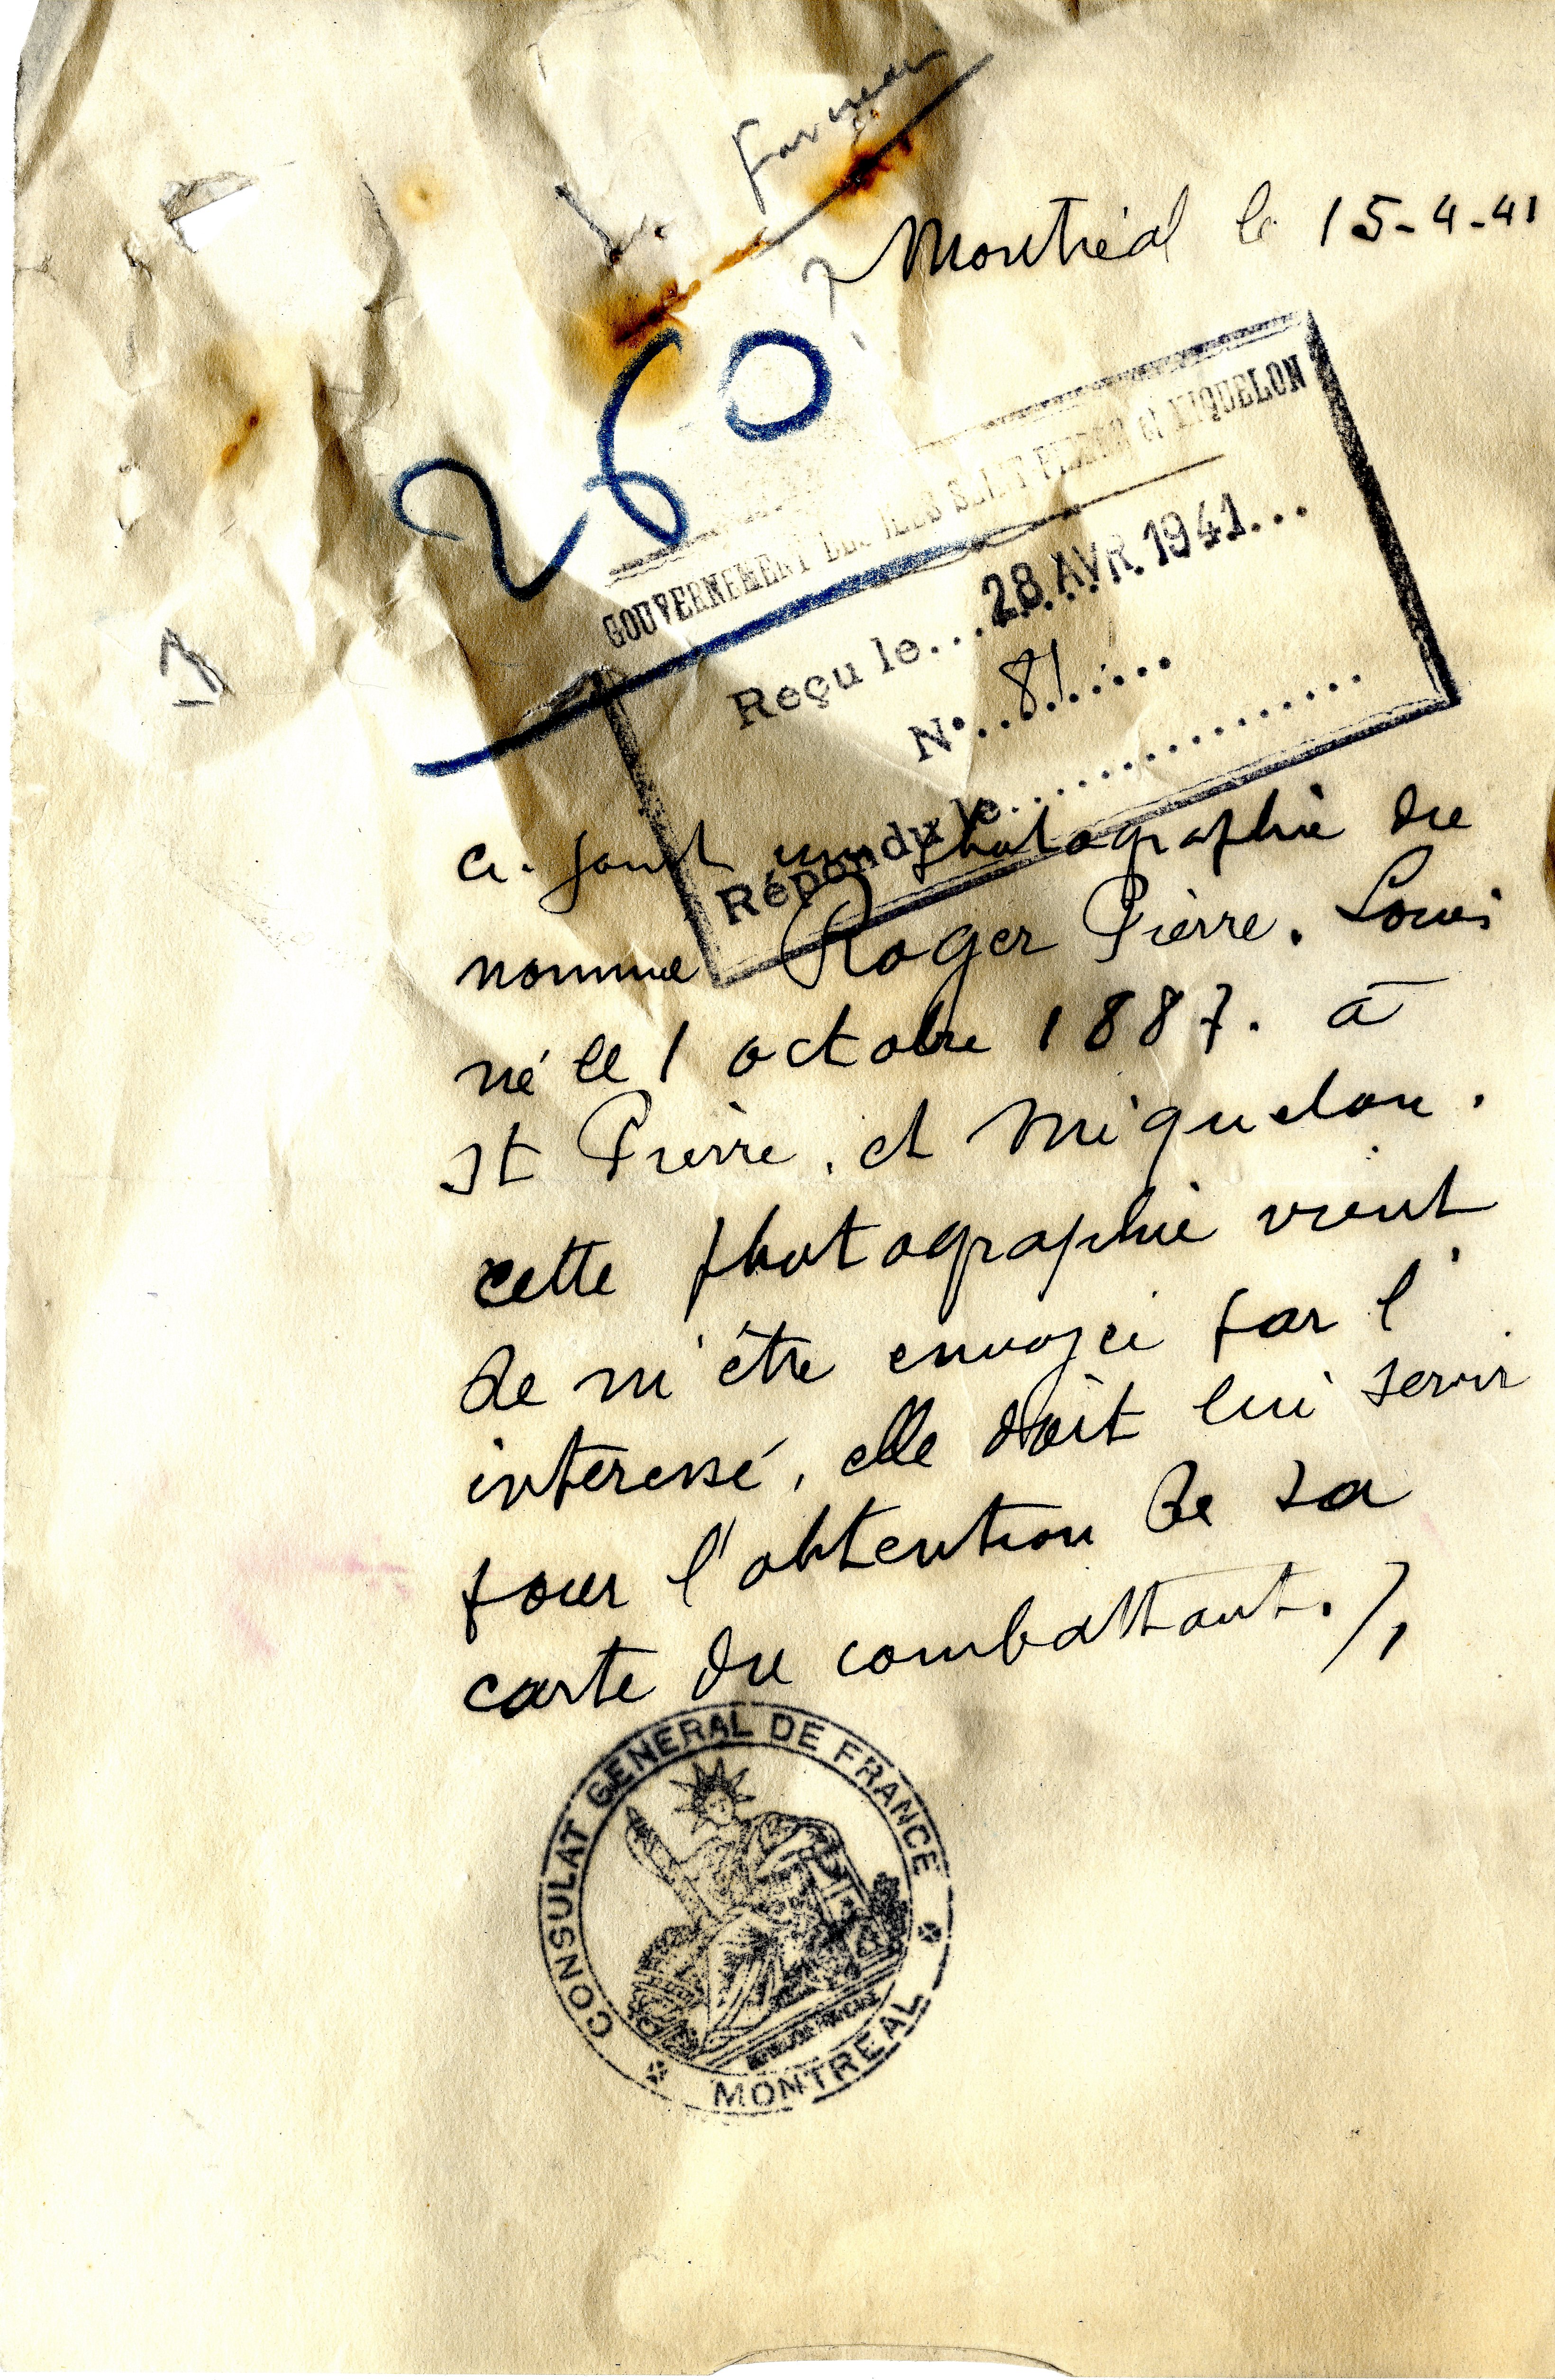 Montréal le 15-4-41
260
GOUVERNEMENT DES ILES SAINT-PIERRE et MIQUELON
Reçu le...28 AVR. 1941...
N°...81......
Répondu le...................
ci-joint une photographie du
nommé Roger Pierre. Louis
né le 1 octobre 1887. à
St Pierre. et Miquelon.
cette photographie vient
de m'être envoyée par l'
intéressé, elle doit lui servir
pour l'obtention de sa
carte du combattant./,
CONSULAT GENERAL DE FRANCE
MONTREAL